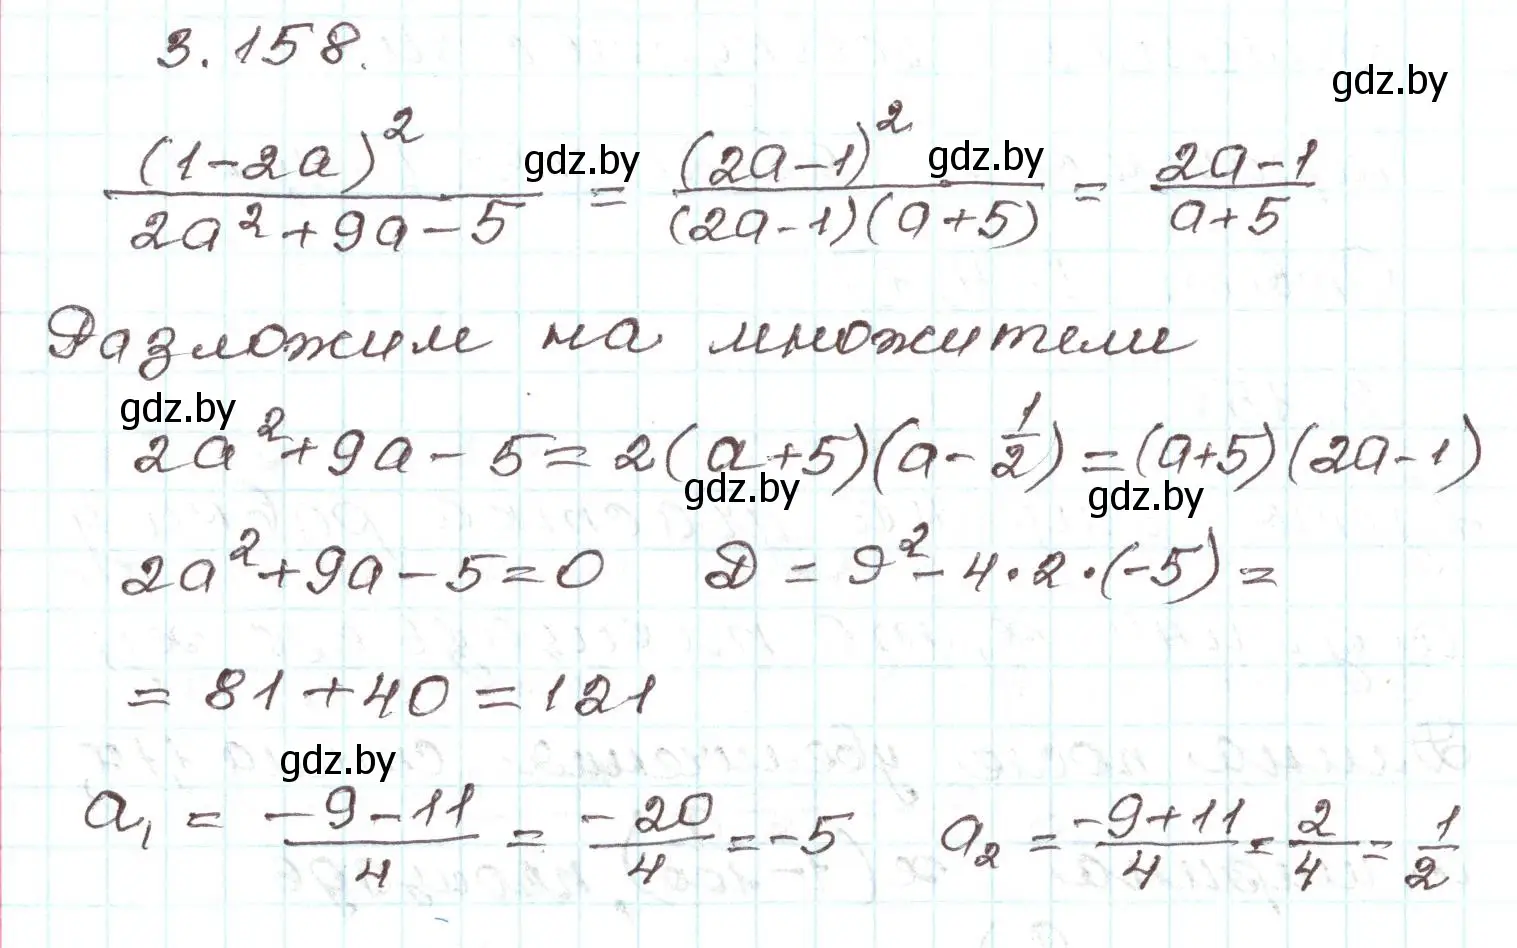 3.158.
gdz.by
(1-2a)² / (2a²+9a-5) = (2a-1)² / ((2a-1)(a+5)) = (2a-1) / (a+5)
gdz.by gdz.by
Разложим на множители
gdz.by
2a²+9a-5=2(a+5)(a-1/2)=(a+5)(2a-1)
gdz.by gdz.by
2a²+9a-5=0 D=9²-4·2·(-5)=
=81+40=121
gdz.by
a₁ = (-9-11)/4 = -20/4 = -5 a₂ = (-9+11)/4 = 2/4 = 1/2